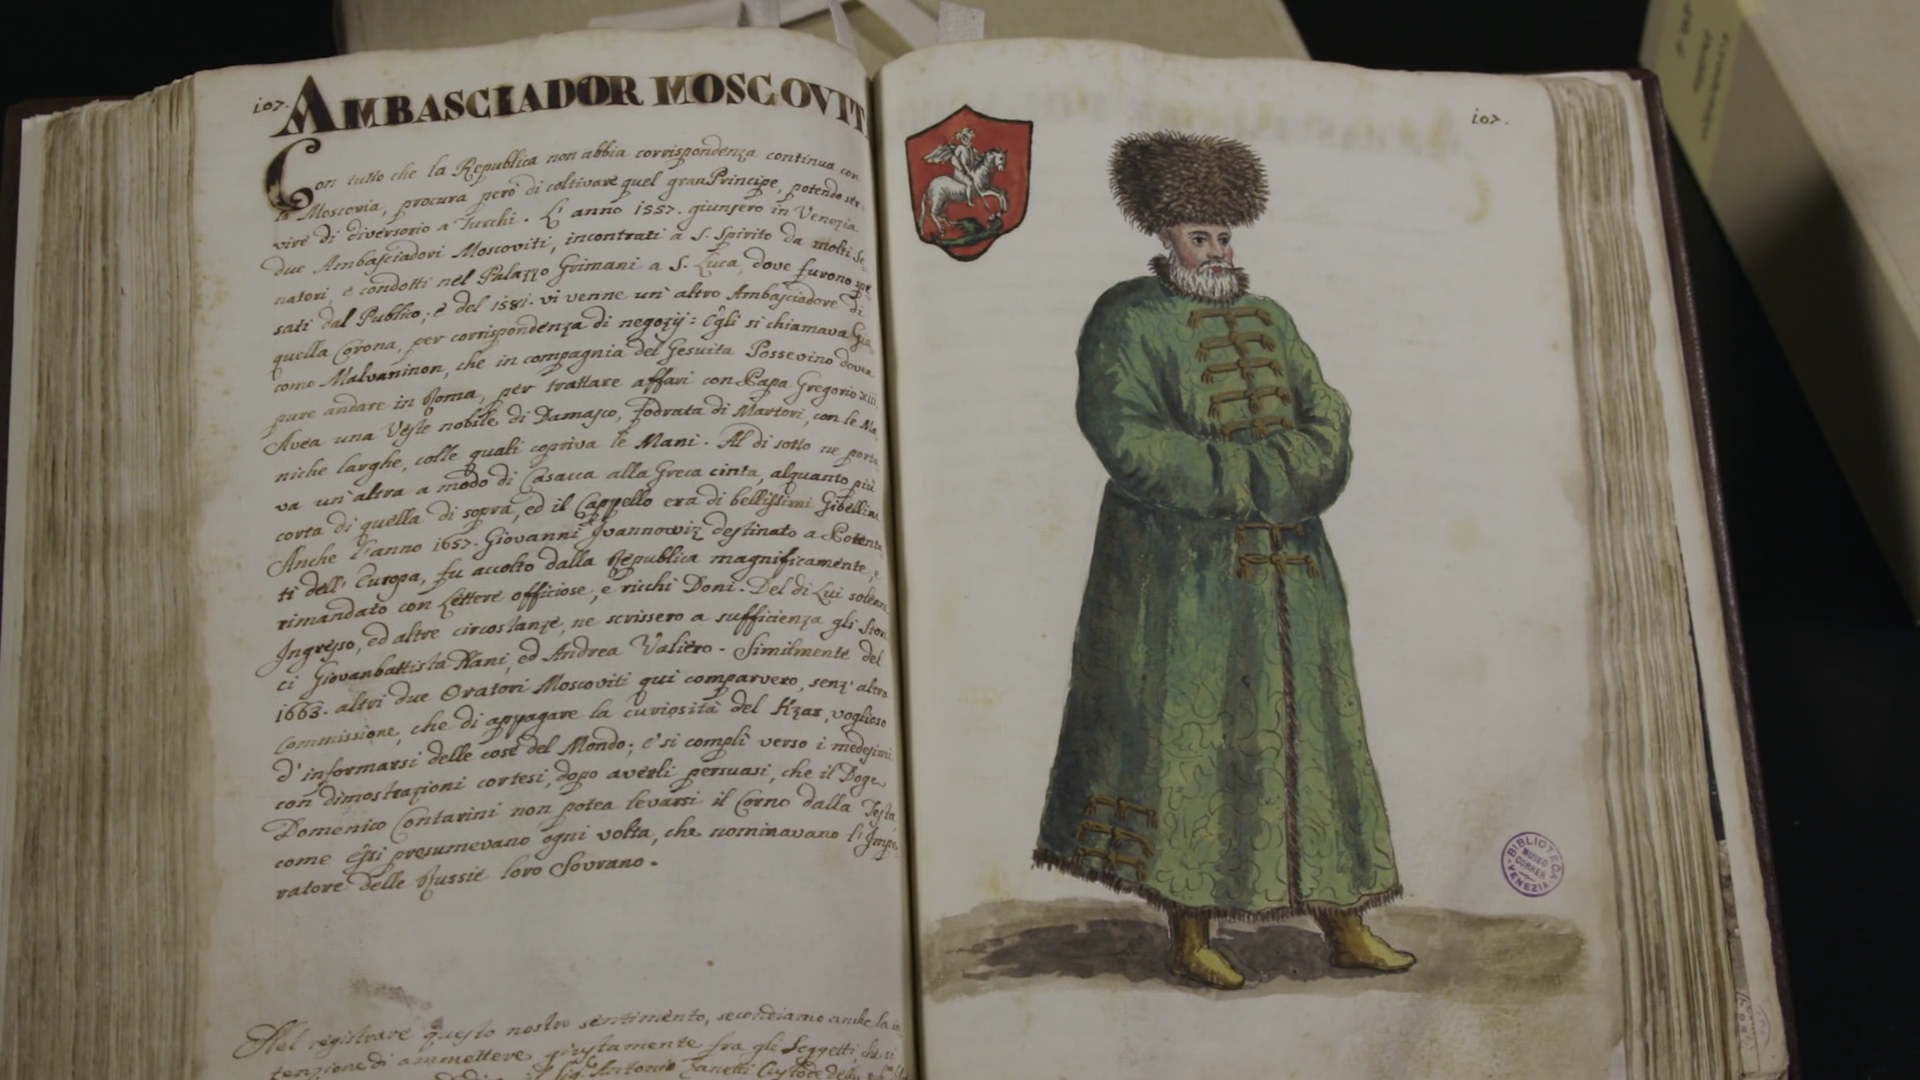 107. AMBASCIADOR MOSCOVIT
Con tutto che la Republica non abbia corrispondenza continua con
la Moscovia, procura però di coltivare quel gran Principe, potendo ser-
vire di diversorio a Turchi. L'anno 1557. giunsero in Venezia
due Ambasciadori Moscoviti, incontrati a S. Spirito da molti Se-
natori, e condotti nel Palazzo Grimani a S. Luca, dove furono spe
sati dal Publico; e del 1581. vi venne un'altro Ambasciadore di
quella Corona, per corrispondenza di negozij: Egli si chiamava Gia
como Malvaninon, che in compagnia del Gesuita Possevino dovea
pure andare in Roma, per trattare affari con Papa Gregorio XIII.
Avea una Veste nobile di Damasco, fodrata di Martori, con le Ma
niche larghe, colle quali copriva le Mani. Al di sotto ne porta
va un'altra a modo di Casacca alla Greca cinta, alquanto più
corta di quella di sopra, ed il Cappello era di bellissimi Gibellini
Anche l'anno 1657. Giovanni Ivannowiz destinato a Potenta
ti dell'Europa, fu accolto dalla Republica magnificamente, e
rimandato con Lettere officiose, e ricchi Doni. Del di Lui solenn
Ingresso, ed altre circostanze, ne scrissero a sufficienza gli Stori
ci Giovanbattista Nani, ed Andrea Valiero. Similmente del
1663. altri due Oratori Moscoviti qui comparvero, senz'altra
Commissione, che di appagare la curiosità del Kzar, voglioso
d'informarsi delle cose del Mondo; e si complì verso i medesimi
con dimostrazioni cortesi, dopo averli persuasi, che il Doge
Domenico Contarini non potea levarsi il Corno dalla Testa
come essi presumevano ogni volta, che nominavano l'Impe
ratore delle Russie loro Sovrano.
Nel registrare questo nostro sentimento, secondiamo anche la in
tenzione di ammettere giustamente fra gli Soggetti, che
Sig. Antonio Zanetti Custode della
107.
BIBLIOTECA
MUSEO
CORRER
VENEZIA